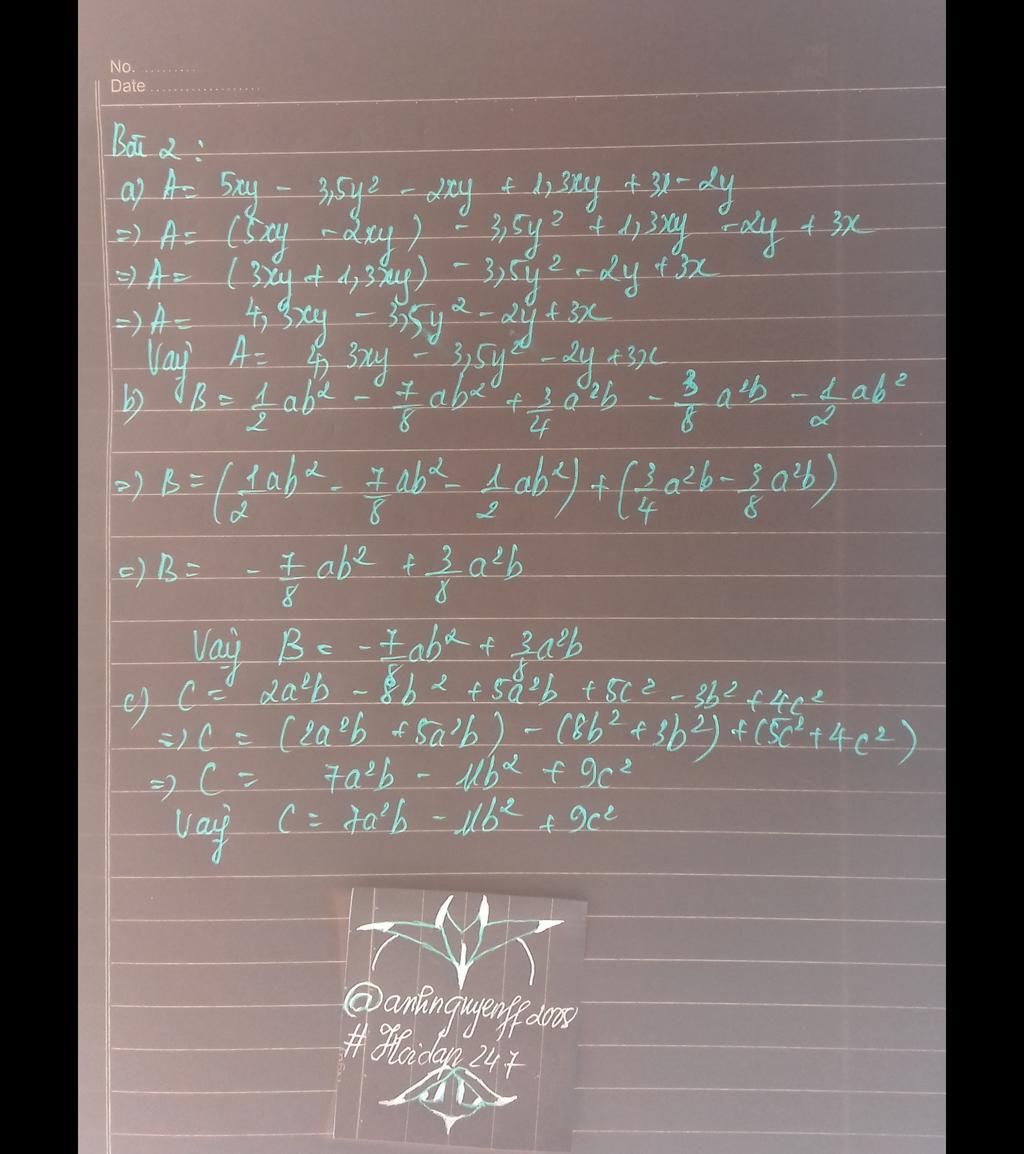 No. .........
Date ...................
Bài 2 :
a) A = 5xy - 3,5y² - 2xy + 1,3xy + 3x - 2y
=) A = (5xy - 2xy) - 3,5y² + 1,3xy - 2y + 3x
=) A = (3xy + 1,3xy) - 3,5y² - 2y + 3x
=) A = 4,3xy - 3,5y² - 2y + 3x
Vậy A = 4,3xy - 3,5y² - 2y + 3x
b) B = 1/2 ab² - 7/8 ab² + 3/4 a²b - 3/8 a²b - 1/2 ab²
=) B = (1/2 ab² - 7/8 ab² - 1/2 ab²) + (3/4 a²b - 3/8 a²b)
=) B = - 7/8 ab² + 3/8 a²b
Vậy B = - 7/8 ab² + 3/8 a²b
c) C = 2a²b - 8b² + 5a²b + 5c² - 3b² + 4c²
=) C = (2a²b + 5a²b) - (8b² + 3b²) + (5c² + 4c²)
=) C = 7a²b - 11b² + 9c²
Vậy C = 7a²b - 11b² + 9c²
@anhnguyenff2008
# Hoidap 247